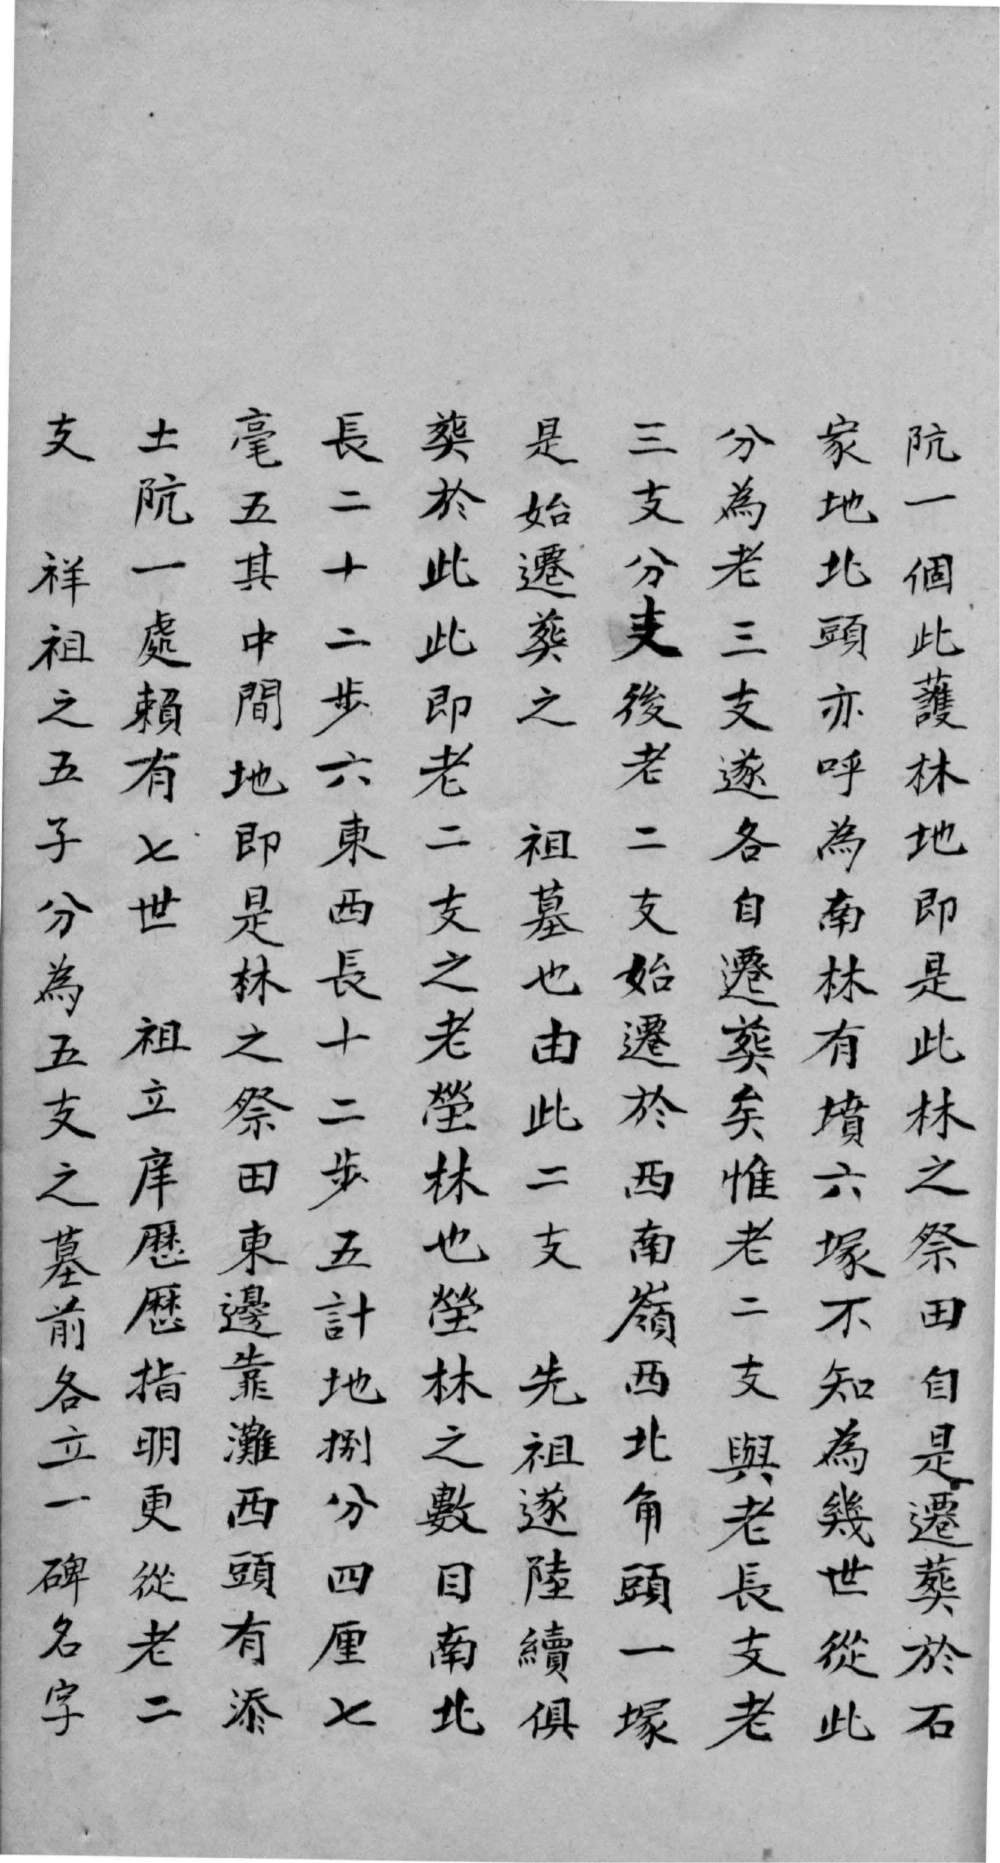 阬一個此護林地即是此林之祭田自是遷葬於石
家地北頭亦呼為南林有墳六塚不知為幾世從此
分為老三支遂各自遷葬矣惟老二支與老長支老
三支分支後老二支始遷於西南嶺西北角頭一塚
是始遷葬之 祖墓也由此二支 先祖遂陸續俱
葬於此此即老二支之老塋林也塋林之數目南北
長二十二步六東西長十二步五計地捌分四厘七
毫五其中間地即是林之祭田東邊靠灘西頭有添
土阬一處賴有七世 祖立庠歷歷指明更從老二
支 祥祖之五子分為五支之墓前各立一碑名字